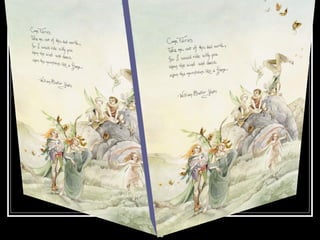 Come Faeries,
Take me out of this dull world,
For I would ride with you
upon the wind and dance
upon the mountains like a flame.
-William Butler Yeats
Come Faeries,
Take me out of this dull world,
For I would ride with you
upon the wind and dance
upon the mountains like a flame.
-William Butler Yeats